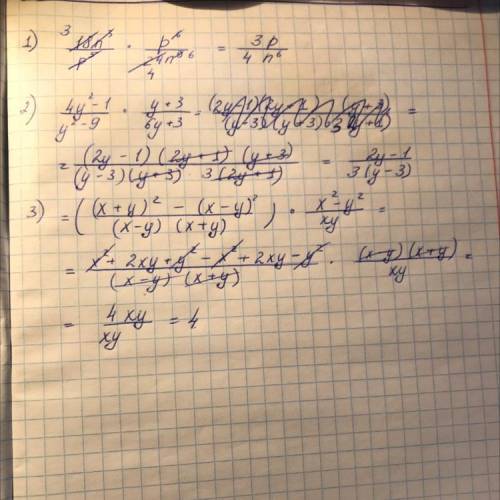 1) 3 18n³/p⁵ · p⁶/24n⁹ 4 6 = 3p/4n⁶
2) 4y²-1/y²-9 · y+3/6y+3 = =
= (2y-1)(2y+1)(y+3)/(y-3)(y+3) 3(2y+1) = 2y-1/3(y-3)
3) = ((x+y)² - (x-y)²/(x-y)(x+y)) · x²-y²/xy =
= x²+2xy+y²-x²+2xy-y²/(x-y)(x+y) · (x-y)(x+y)/xy =
= 4xy/xy = 4